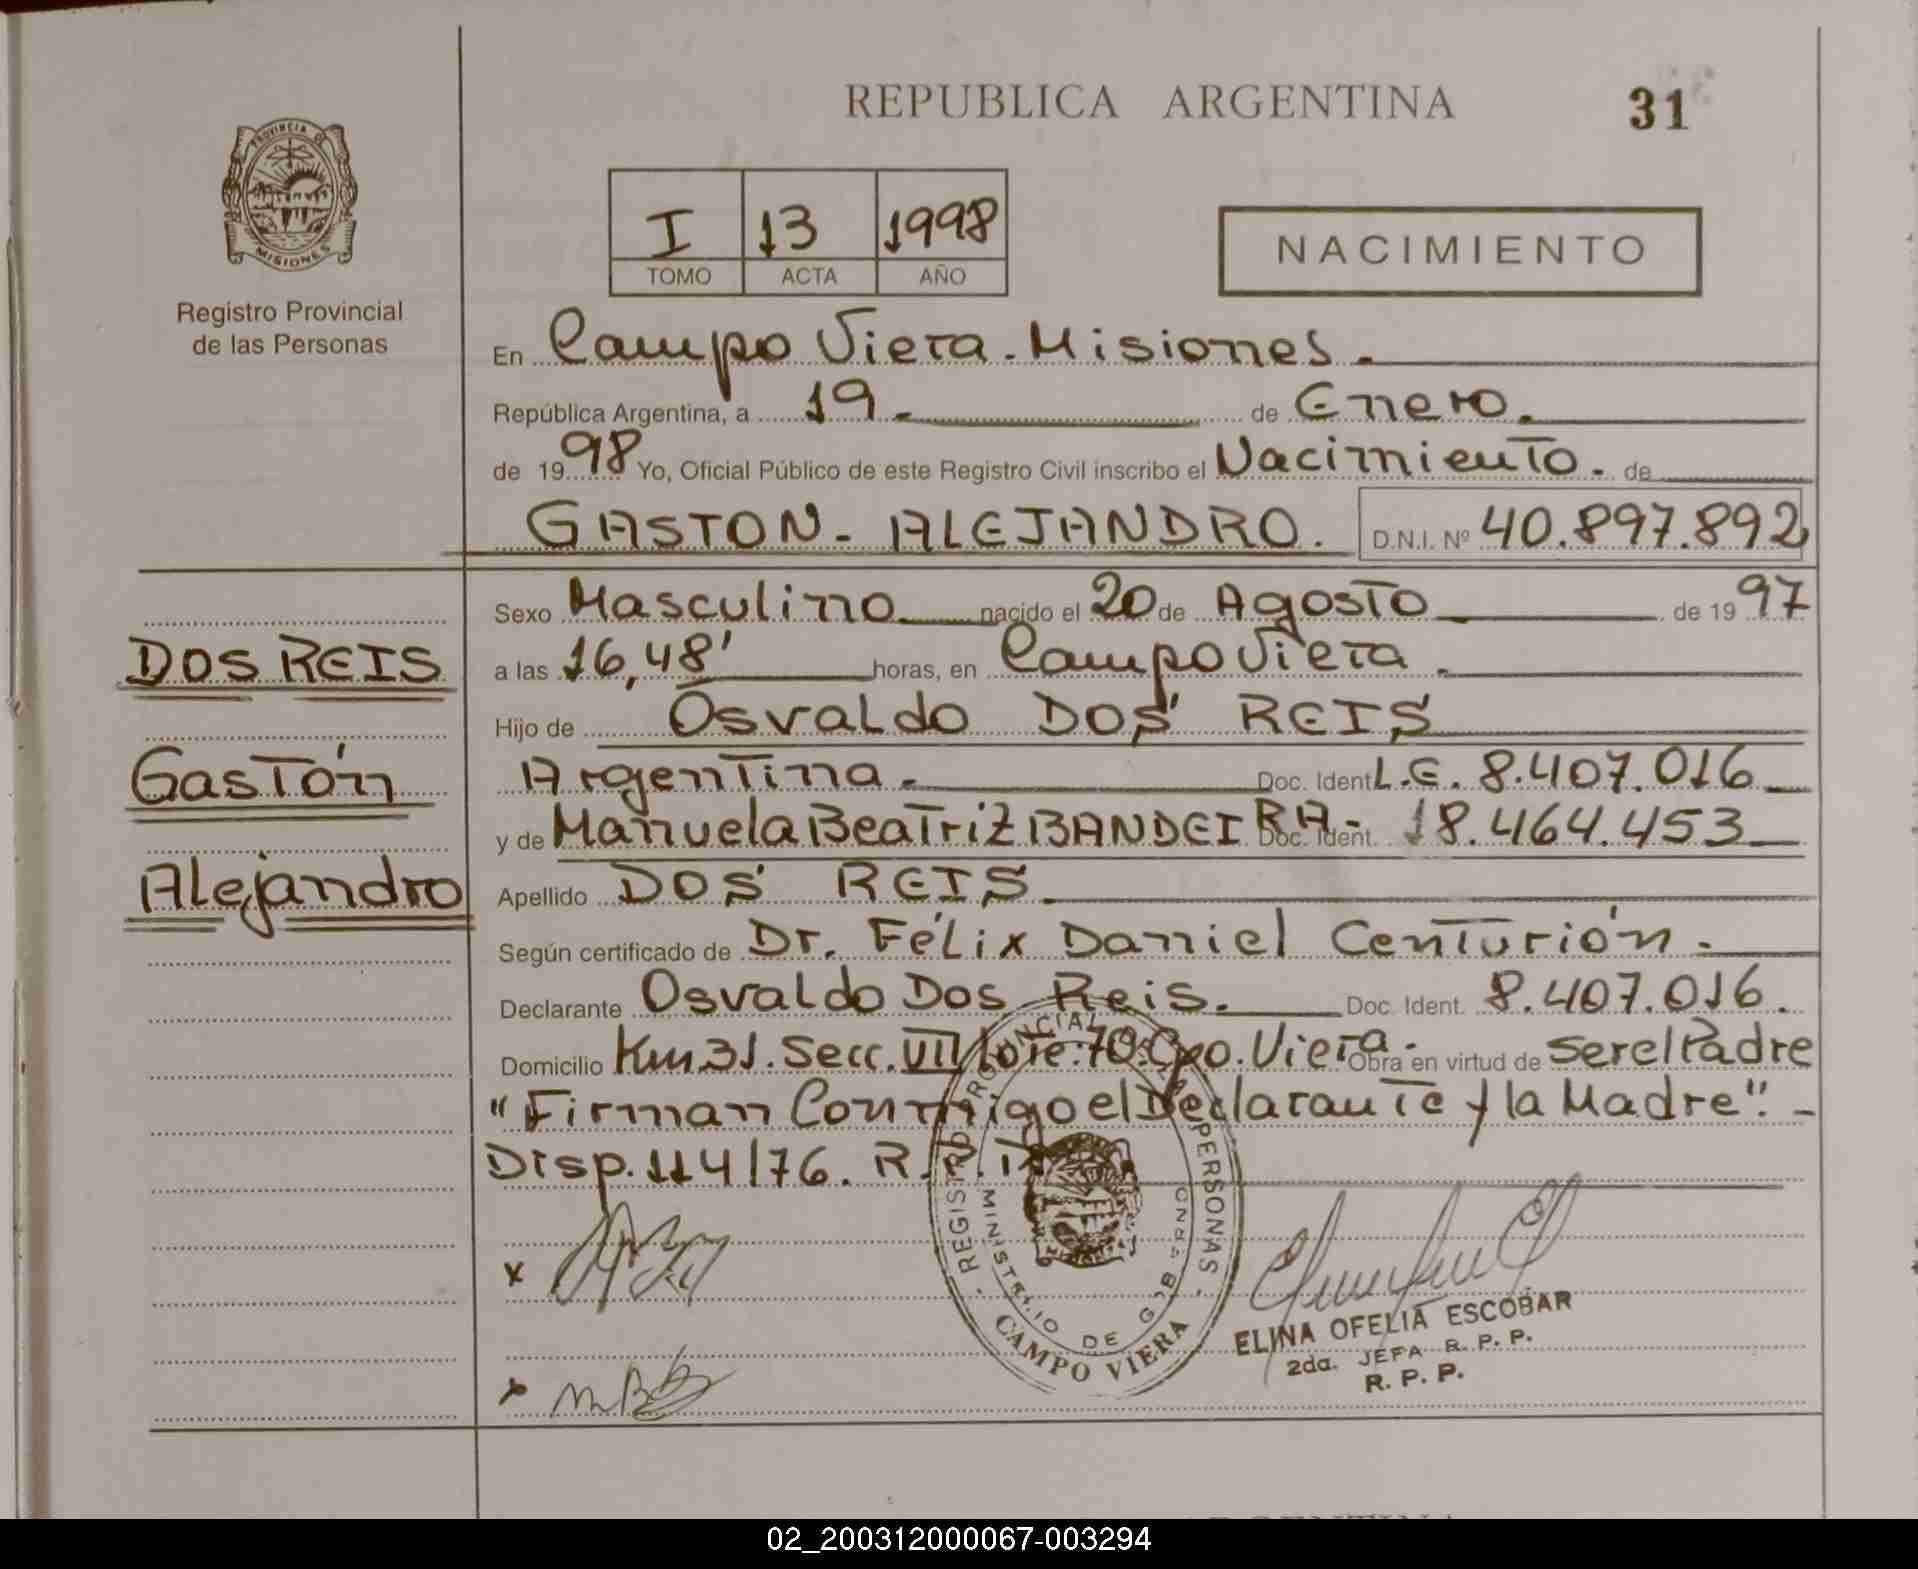 REPUBLICA ARGENTINA
31
PROVINCIA DE MISIONES
Registro Provincial
de las Personas
I 13 1998
TOMO ACTA AÑO
NACIMIENTO
En Campo Viera - Misiones.
República Argentina, a 19 de Enero.
de 1998 Yo, Oficial Público de este Registro Civil inscribo el Nacimiento. de
GASTON - ALEJANDRO. D.N.I. Nº 40.897.892
Sexo Masculino nacido el 20 de Agosto de 1997
a las 16,48' horas, en Campo Viera.
Hijo de Osvaldo DOS REIS
Argentina. Doc. Ident. L.E. 8.407.016
y de Manuela Beatriz BANDEIRA - Doc. Ident. 18.464.453
Apellido DOS REIS.
Según certificado de Dr. Félix Daniel Centurión.
Declarante Osvaldo Dos Reis. Doc. Ident. 8.407.016.
Domicilio Km 31. Secc. VII lote: 70. Cpo. Viera. Obra en virtud de ser el Padre
"Firman Conmigo el Declarante y la Madre". -
Disp. 114/76. R.P.P.
DOS REIS
Gastón
Alejandro
x
x
REGISTRO PROVINCIAL DE LAS PERSONAS
MINISTERIO DE GOB
CAMPO VIERA
ELINA OFELIA ESCOBAR
2da. JEFA R. P. P.
R. P. P.
02_200312000067-003294